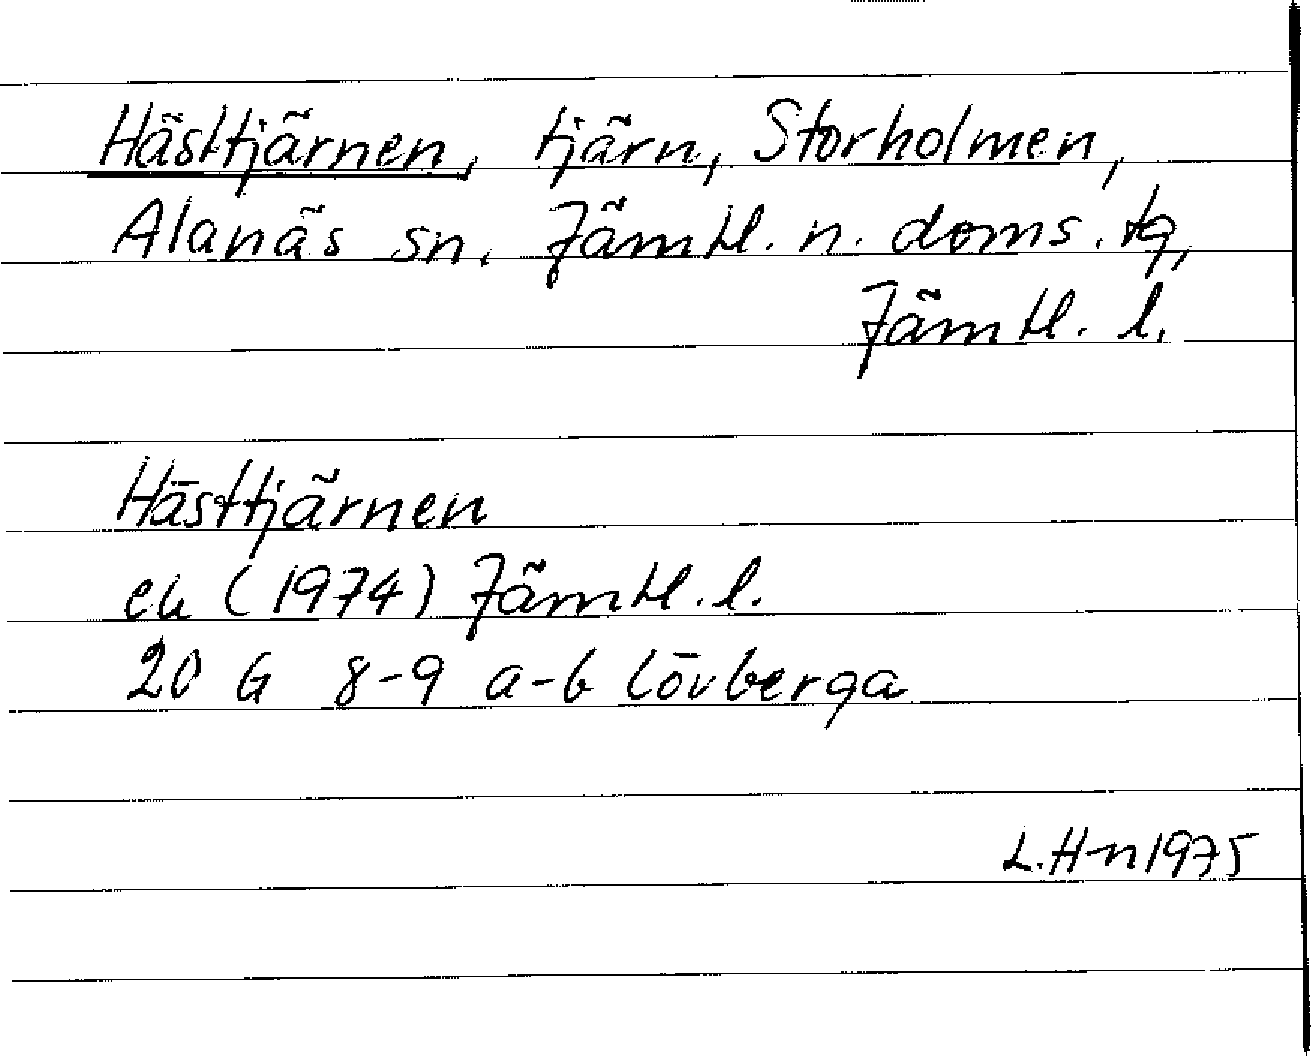 Hästtjärnen, tjärn, Storholmen,
Alanäs sn, Jämtl. n. doms. tg,
Jämtl. l.
Hästtjärnen
ek (1974) Jämtl. l.
20 G 8-9 a-b Lövberga
L. H-n 1975